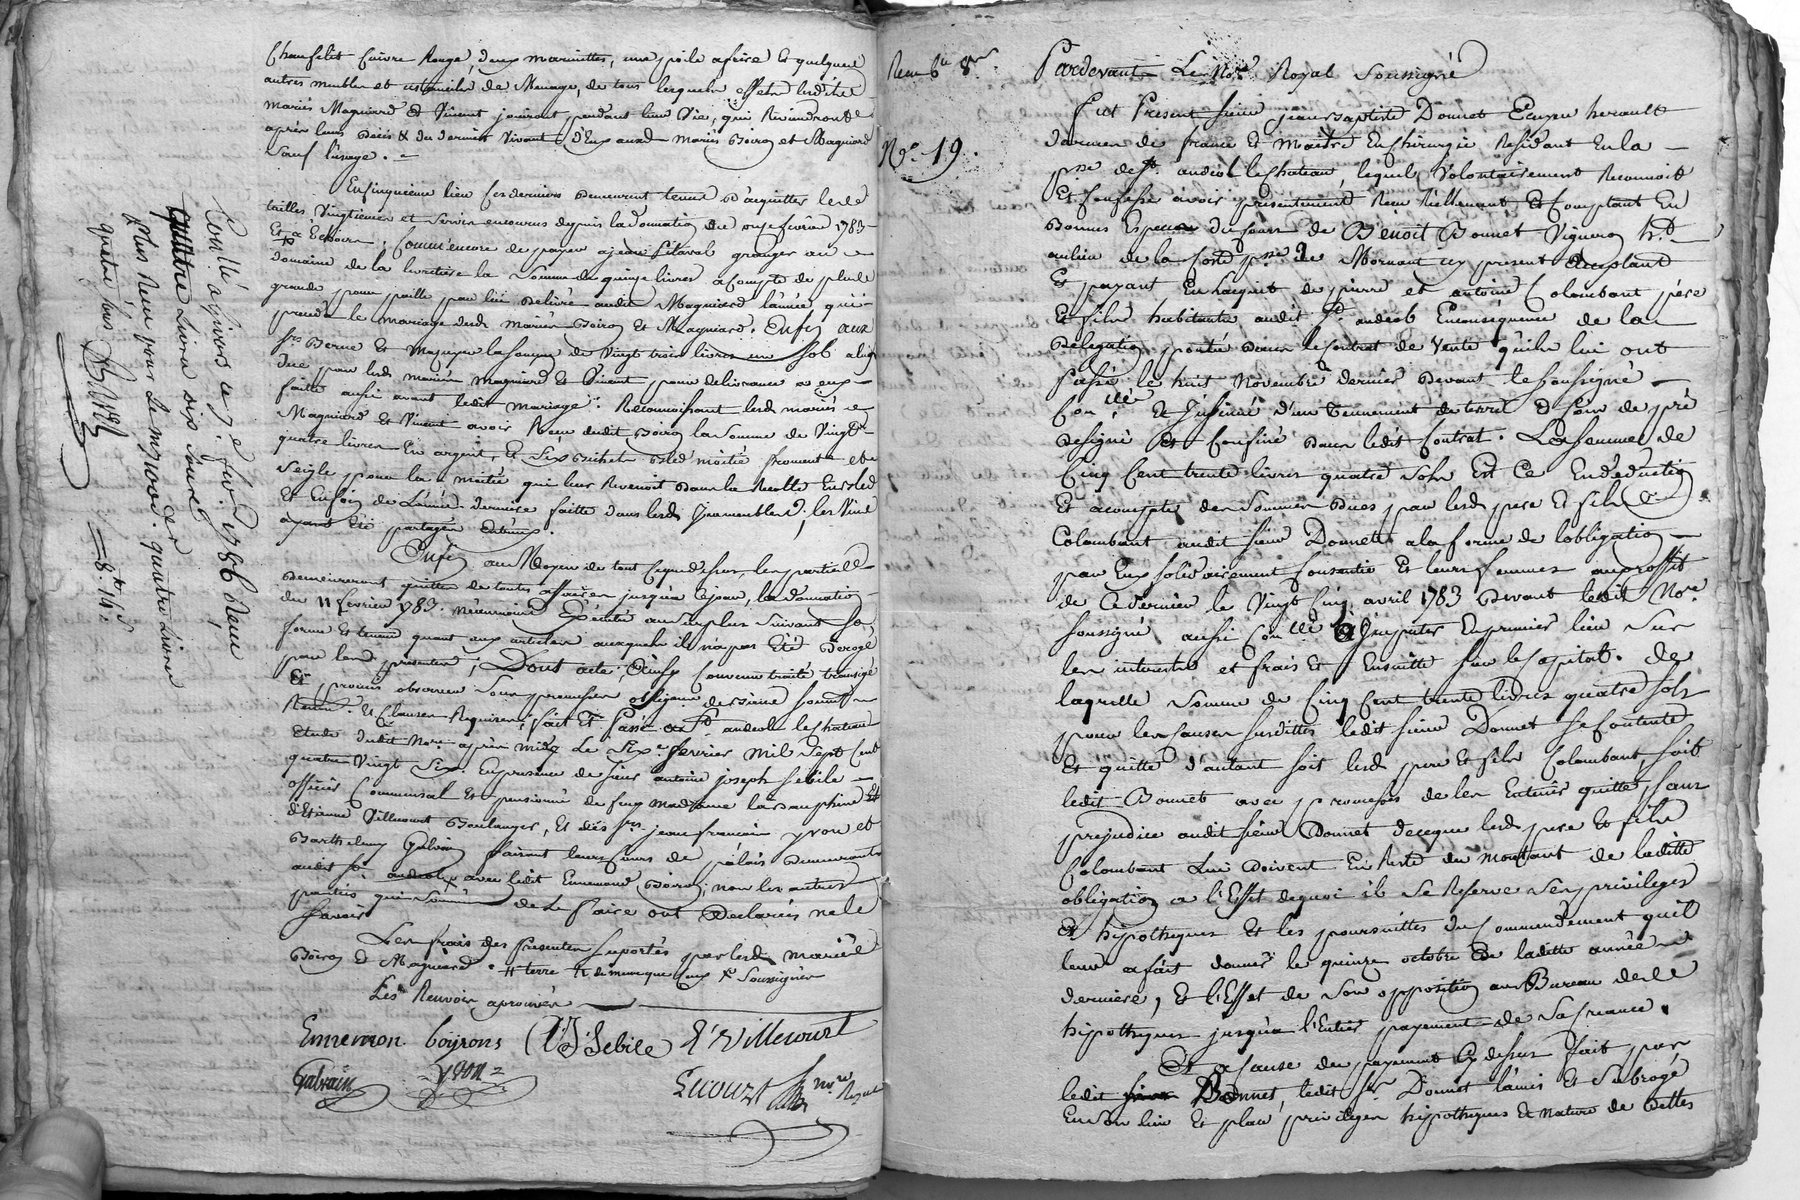 Chauffelit Cuivre Rouge, deux marmittes, une poile a frire Et quelques
autres meubles et ustanciles de Menage, de tous lesquels effets lesdits
mariés Magniard Et Vincent jouiront pendant leur Vie, qui Reviendront
après leurs Décès & du dernier Vivant d'Eux auxd. mariés Boiron et Magniard
Sauf l'usage.
En cinquieme lieu Ces derniers Demeurent tenus D'acquitter les
tailles, Vingtièmes et Servis encourus depuis la Donation du onze fevrier 1783
Et a Echoir; Comm'encore de payer a jean granger au
Domaine de la la Somme de quinze livres acompte de plus
grande pour paille par lui Delivré audit Magniard l'année qui
le mariage desd. mariés Boiron Et Magniard. Enfin aux
Srs. Berne Et la somme de Vingt trois livres un sol a lui
Due par lesd. mariés Magniard Et Vincent pour delivrance a eux
faitte aussi avant ledit mariage. Reconnoissant lesd. mariés
Magniard Et Vincent avoir Reçu dudit Boiron la Somme de Vingt
quatre livres En argent, & Six Bichets Bled moitié froment et
Seigle pour la moitié qui leur Revenoit Dans la Recolte En Bled
Et En foin de l'année derniere faitte dans lesd. Immeubles; les Vins
ayant été partagés entr'eux.
Enfin au Moyen de tout Cequedessus, les parties
Demeureront quittes de toutes affaires jusqu'a cejour, la Donation
du 11 fevrier 1783. neanmoins Exécutée au Surplus Suivant Sa
forme Et teneur quant aux articles auxquels il n'a pas Eté Derogé
par les presentes; Dont acte; Ainsy Convenu traité transigé
Et promis observer Sous promesses obligeans de biens soumis
Renon. & Clauses Requises; fait Et Passé a St. andeol le chateau
Etude dudit Nore. après midy Le Six fevrier Mil Sept Cent
quatre Vingt Six. En presence de sieur antoine joseph Sebile
officier Commensal Et pensionné de feue madame la Dauphine Et
d'Etienne Villecourt Boulanger, Et des Srs. jean francois yvon et
Barthelemy Galvain faisant leurs cours de palais Demeurants
audit St. andeol avec ledit Ennemond Boiron; non les autres
parties qui Sommés de Le faire ont Declarés ne le
Savoir
Les frais des Presentes suportés par lesd. mariés
Boiron Et Magniard. # terre de mesme que eux & Soussignés
Les Renvois aprouvés
Ennemon boyrons AJ Sebile E Villecourt
Galvain yvon
Lecourt Nore. Royal
Conllé a Givors ce 7e. fev. 1786 Reçu
quattre Livres dix sous
plus Reçu pour Le mzood. der quatre Livres
quatre sous = 8tt. 14s.
Remb. 8r
No. 19.
Pardevant Le Nore. Royal Soussigné
Fut Present sieur jean baptiste Donnet Ecuyer herault
Darmes de france Et Maitre En Chirurgie Residant En la
psse. de St. andeol le chateau, lequel Volontairement Reconnoit
Et Confesse avoir presentement Reçu Réellement Et Comptant En
Bonnes Especes du Cours de Benoit Bonnet Vigneron ht.
au lieu de la psse. de Mornant cy present acceptant
Et payant En l'acquit de pierre et antoine Colombant pere
Et fils habitants audit St. andeol Enconséquence de la
Delegation portée Dans le Contrat de Vente qu'ils lui ont
Passé le huit Novembre dernier Devant le soussigné
Conllé & Insinué d'un Tennement de terre & foin de pré
Designé Et Confiné Dans ledit Contrat. La somme de
Cinq Cent trente livres quatre Sols Et Ce En déduction
Et acompte des Sommes Dues par lesd. pere Et fils
Colombant audit sieur Donnet a la forme de l'obligation
par Eux solidairement Consentie Et leurs femmes au proffit
de Ce dernier le Vingt Cinq avril 1783 Devant ledit Nore.
soussigné aussi Conllé a Imputer En premier lieu Sur
les intérêts et frais Et Ensuitte sur le Capital. De
laquelle Somme de Cinq Cent trente livres quatre sols
pour les Causes susdittes ledit sieur Donnet se Contente
Et quitte d'autant soit lesd. pere Et fils Colombant, soit
ledit Bonnet avec promesses de les Entenir quittes, sans
prejudice audit sieur Donnet deceque lesd. pere Et fils
Colombant Lui Doivent En Reste du Montant de laditte
obligation a l'Effet dequoi il Se Reserve Ses privileges
Et hipotheques Et les poursuittes du Commandement quil
leur a fait donner le quinze octobre De laditte année
derniere, Et l'Effet de Son opposition au Bureau des
hipotheques jusqu'a l'Entier payement de Sa Creance.
Et a Cause du payement Cy dessus fait par
ledit Bonnet, ledit Sr. Donnet l'a mis Et Subrogé
En Son lieu Et place privileges hipotheques & Nature de Dettes